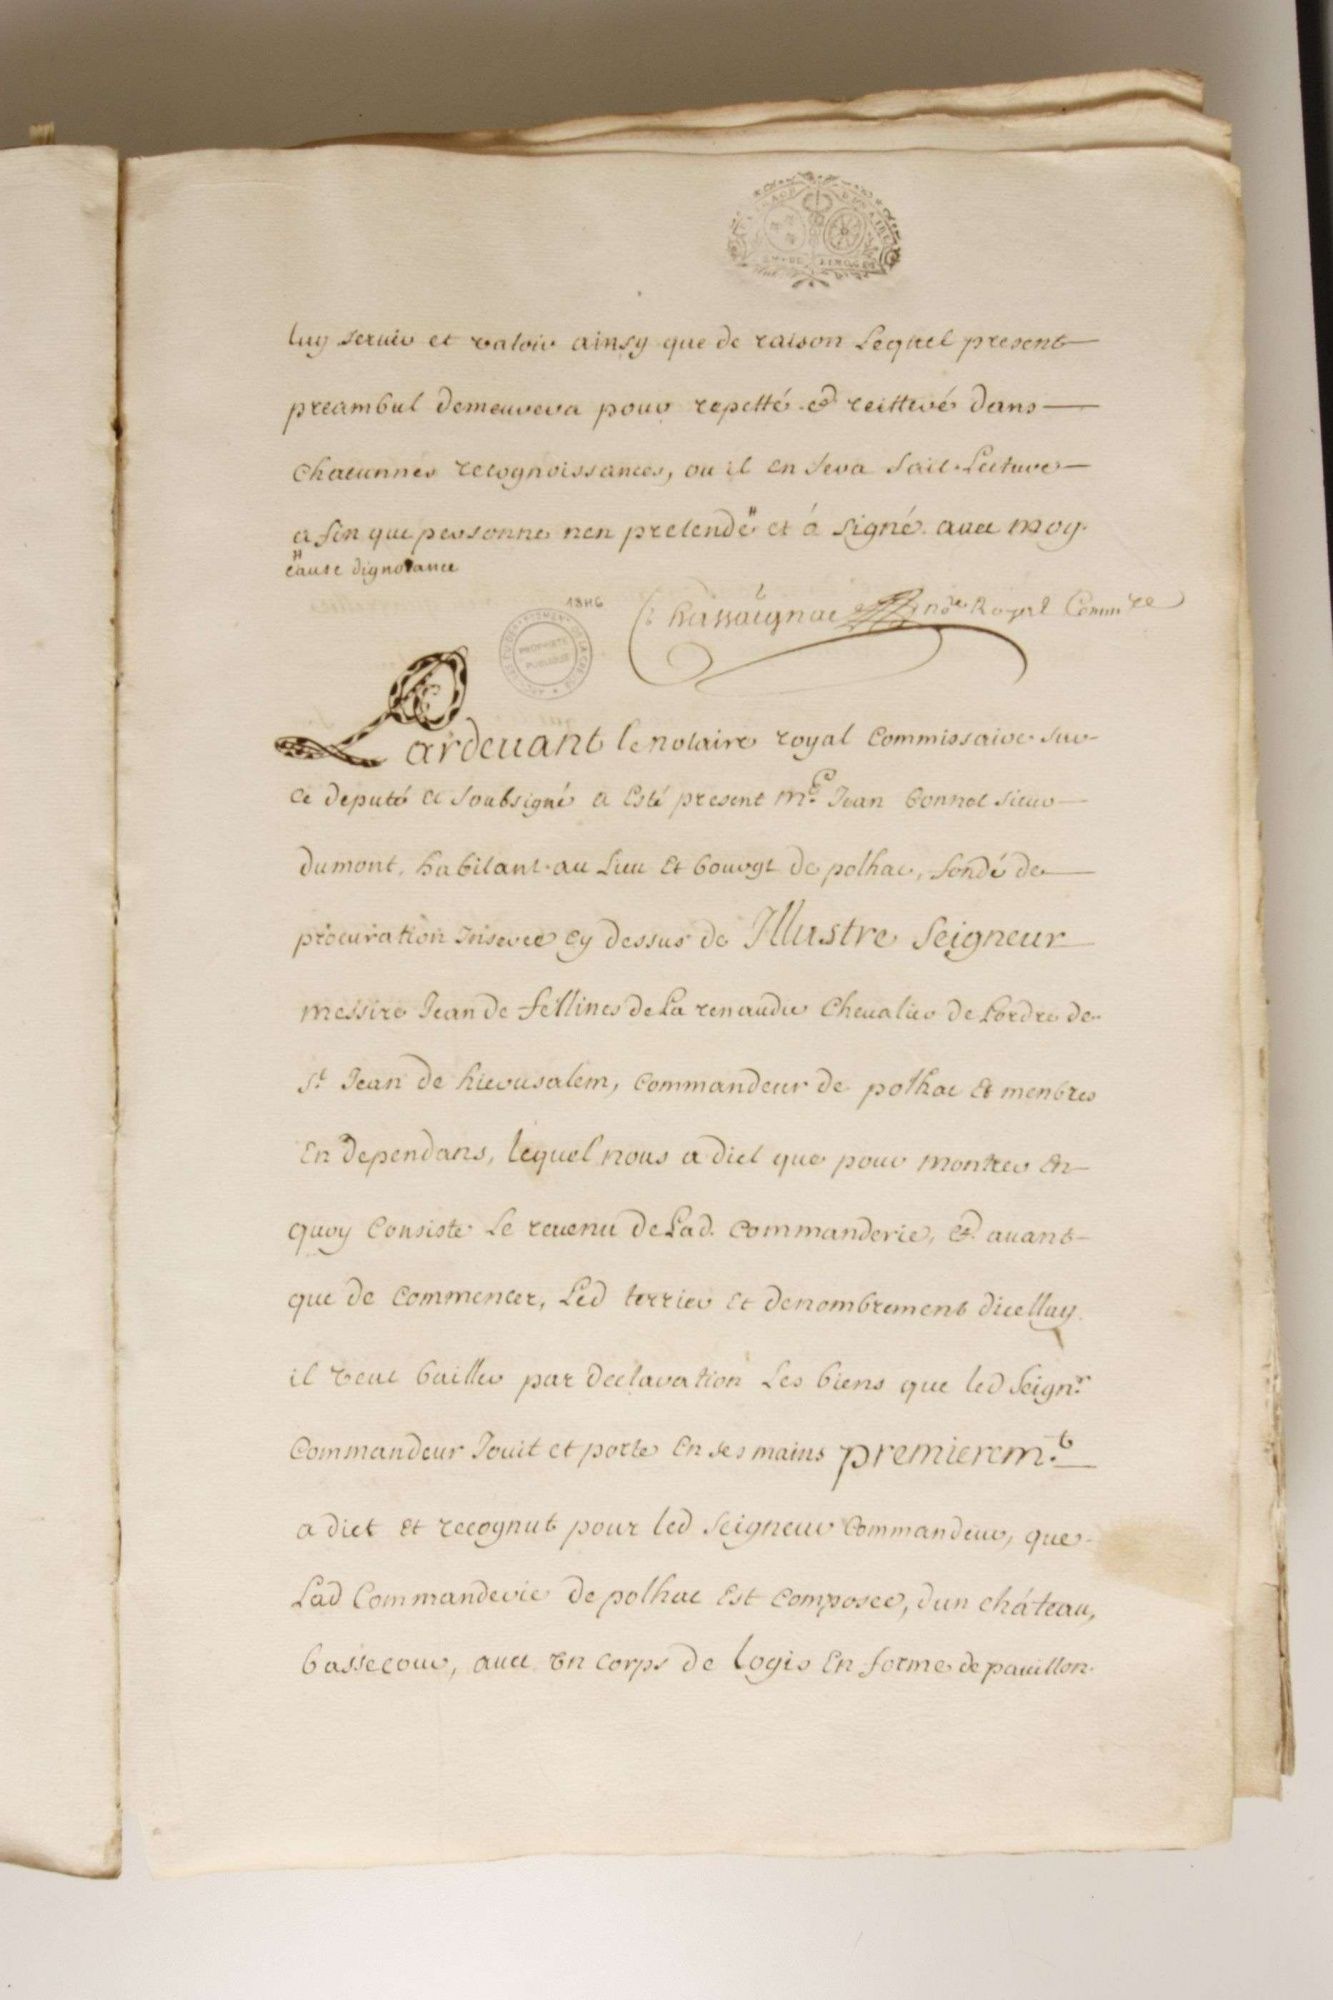 luy servir et valoir ainsy que de raison Lequel present
preambul demeurera pour repetté et reitteré dans
chacunnes recognoissances, ou il en sera fait Lecture
a fin que personne nen pretende" et á signé avec moy
"cause dignorance
1846
Chassaignac no.re Royal Comm.re
PROPRIETE PUBLIQUE
Pardevant le notaire royal commissaire sur
ce deputé et soubsigné a esté present M.e Jean bonnet sieur
dumont, habitant au Lieu et bourgt de polhac, fondé de
procuration Inseree cy dessus de Illustre Seigneur
messire Jean de fellines de La renaudie chevalier de Lordre de
S.t Jean de hierusalem, commandeur de polhac et menbres
En dependans, lequel nous a dict que pour montrer En
quoy consiste Le revenu de Lad. commanderie, et avant
que de commencer, Led terrier et denombrement dicelluy
il veut bailler par declaration Les biens que led Seign.r
commandeur Jouit et porte En ses mains premierem.t
a dict et recognut pour led Seigneur commandeur, que
Lad commanderie de polhac Est composee, dun château,
bassecour, avec vn corps de logis En forme de pavillon